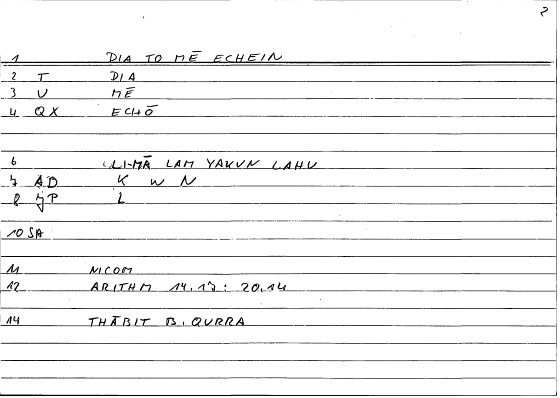 2
1 DIA TO MĒ ECHEIN
2 T DIA
3 U MĒ
4 QX ECHŌ
6 LI-MĀ LAM YAKUN LAHU
7 AD K W N
8 JP L
10 SA
11 NICOM
12 ARITHM 14.17 : 20.14
14 THĀBIT B. QURRA